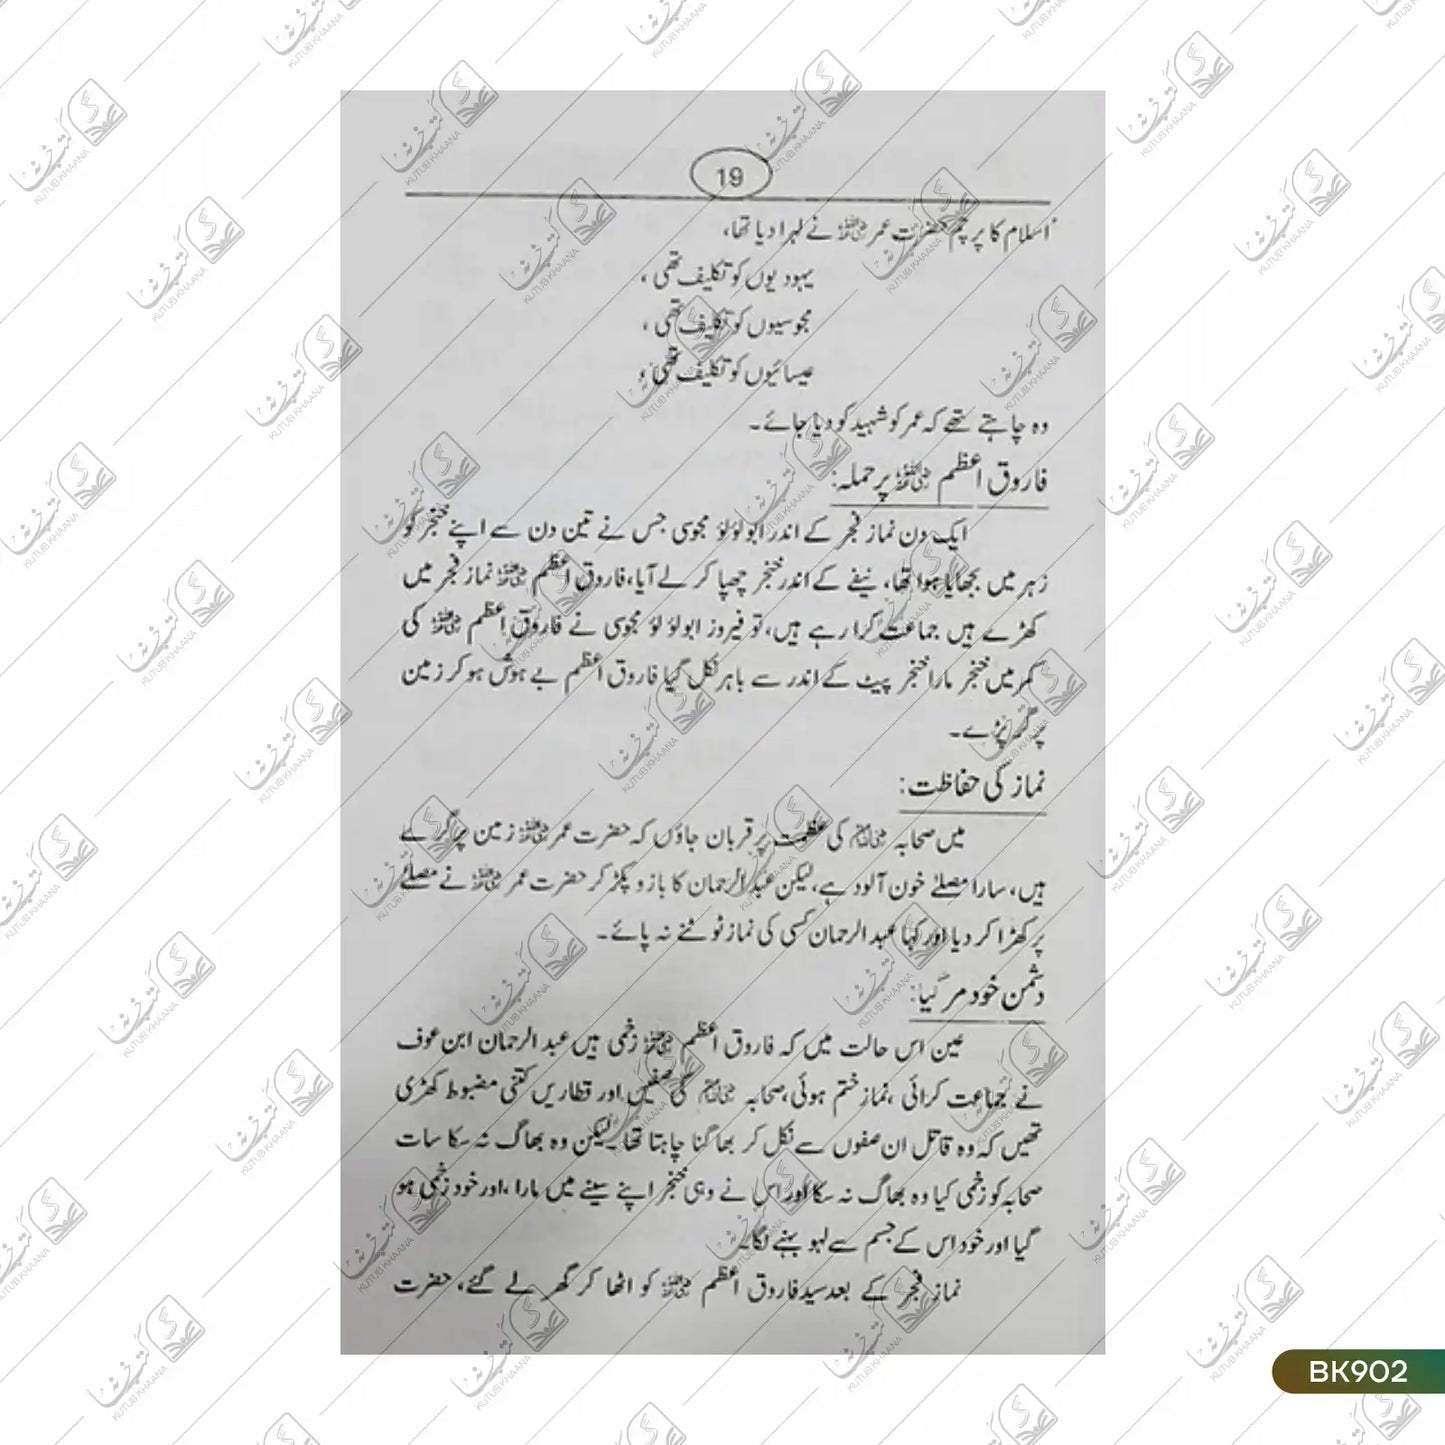 19
اسلام کا پرچم حضرت عمر رضی اللہ عنہ نے لہرا دیا تھا،
یہودیوں کو تکلیف تھی،
مجوسیوں کو تکلیف تھی،
عیسائیوں کو تکلیف تھی،
وہ چاہتے تھے کہ عمر کو شہید کو دیا جائے۔
فاروق اعظم رضی اللہ عنہ پر حملہ:
ایک دن نماز فجر کے اندر ابولؤلؤ مجوسی جس نے تین دن سے اپنے خنجر کو
زہر میں بجھایا ہوا تھا، نیفے کے اندر خنجر چھپا کر لے آیا، فاروق اعظم رضی اللہ عنہ نماز فجر میں
کھڑے ہیں جماعت کرا رہے ہیں، تو فیروز ابولؤلؤ مجوسی نے فاروق اعظم رضی اللہ عنہ کی
کمر میں خنجر مارا خنجر پیٹ کے اندر سے باہر نکل گیا فاروق اعظم بے ہوش ہو کر زمین
پر گر پڑے۔
نماز کی حفاظت:
میں صحابہ رضی اللہ عنہم کی عظمت پر قربان جاؤں کہ حضرت عمر رضی اللہ عنہ زمین پر گرے
ہیں، سارا مصلے خون آلود ہے، لیکن عبدالرحمان کا بازو پکڑ کر حضرت عمر رضی اللہ عنہ نے مصلے
پر کھڑا کر دیا اور کہا عبدالرحمان کسی کی نماز ٹوٹنے نہ پائے۔
دشمن خود مر گیا:
عین اس حالت میں کہ فاروق اعظم رضی اللہ عنہ زخمی ہیں عبدالرحمان ابن عوف
نے جماعت کرائی، نماز ختم ہوئی، صحابہ رضی اللہ عنہم کی صفیں اور قطاریں کتنی مضبوط کھڑی
تھیں کہ وہ قاتل ان صفوں سے نکل کر بھاگنا چاہتا تھا۔ لیکن وہ بھاگ نہ سکا سات
صحابہ کو زخمی کیا وہ بھاگ نہ سکا اور اس نے وہی خنجر اپنے سینے میں مارا، اور خود زخمی ہو
گیا اور خود اس کے جسم سے لہو بہنے لگا۔
نماز فجر کے بعد سید فاروق اعظم رضی اللہ عنہ کو اٹھا کر گھر لے گئے، حضرت
کتب خانہ
KUTUB KHAANA
BK902